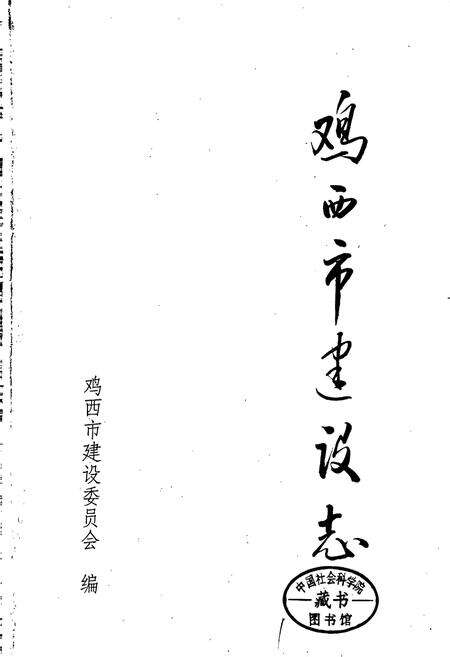 鸡西市建设志
鸡西市建设委员会 编
中国社会科学院
藏书
图书馆